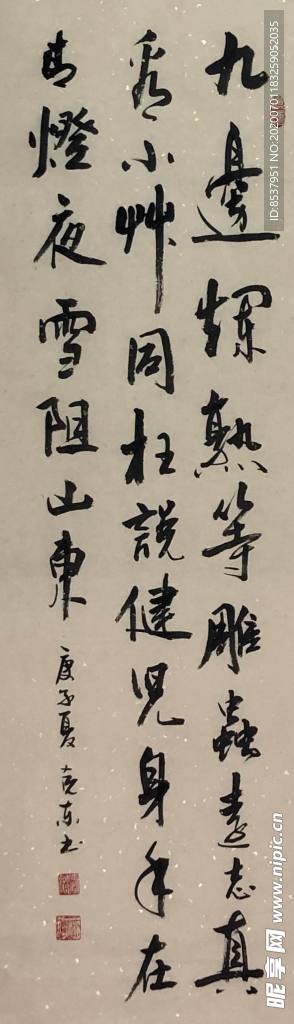 九邊爛熟等雕蟲遠志真
看小艸同枉說健兒身手在
青燈夜雪阻山東
庚子夏克东书
ID:8537951 NO:20200701183259052035
昵享网 www.nipic.cn